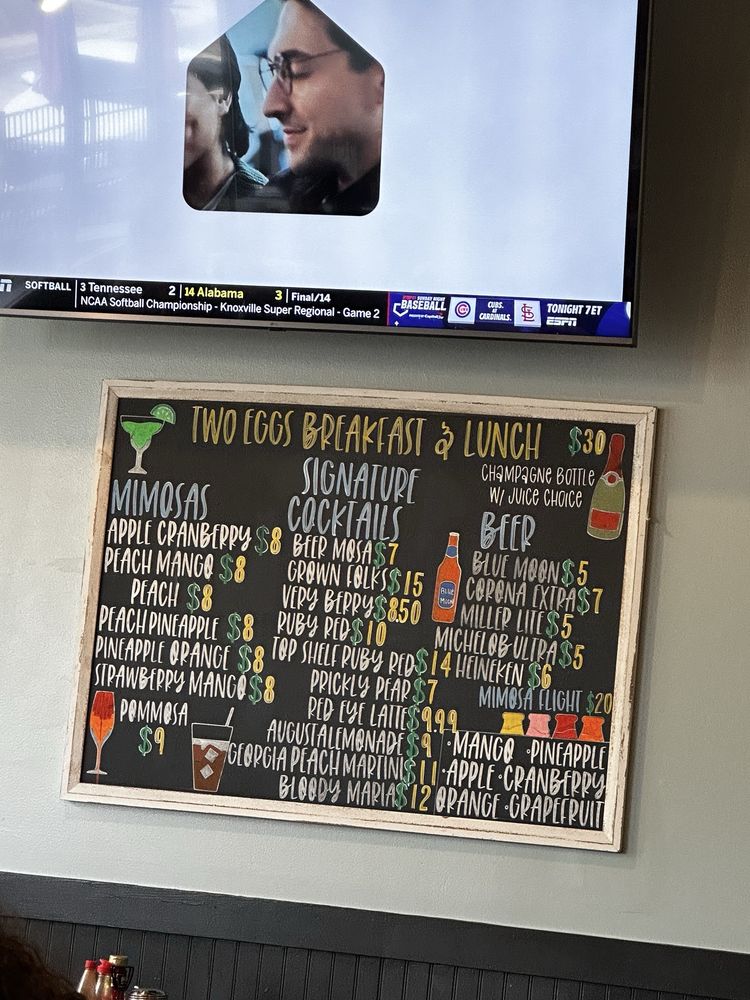 SOFTBALL
3 Tennessee 2 14 Alabama 3 Final/14
NCAA Softball Championship - Knoxville Super Regional - Game 2
SUNDAY NIGHT
BASEBALL
CUBS
AT
CARDINALS
TONIGHT 7ET
ESPN
TWO EGGS BREAKFAST & LUNCH
$30
CHAMPAGNE BOTTLE
W/ JUICE CHOICE
MIMOSAS
APPLE CRANBERRY $8
PEACH MANGO $8
PEACH $8
PEACH PINEAPPLE $8
PINEAPPLE ORANGE $8
STRAWBERRY MANGO $8
POMMOSA
$9
SIGNATURE
COCKTAILS
BEER MOSA $7
GROWN FOLKS $15
VERY BERRY $8.50
RUBY RED $10
TOP SHELF RUBY RED $14
PRICKLY PEAR $7
RED EYE LATTE $9.99
AUGUSTA LEMONADE $9
GEORGIA PEACH MARTINI $11
BLOODY MARIA $12
BEER
BLUE MOON $5
CORONA EXTRA $7
MILLER LITE $5
MICHELOB ULTRA $5
HEINEKEN $6
BLUE
MOON
MIMOSA FLIGHT $20
·MANGO ·PINEAPPLE
·APPLE ·CRANBERRY
ORANGE ·GRAPEFRUIT